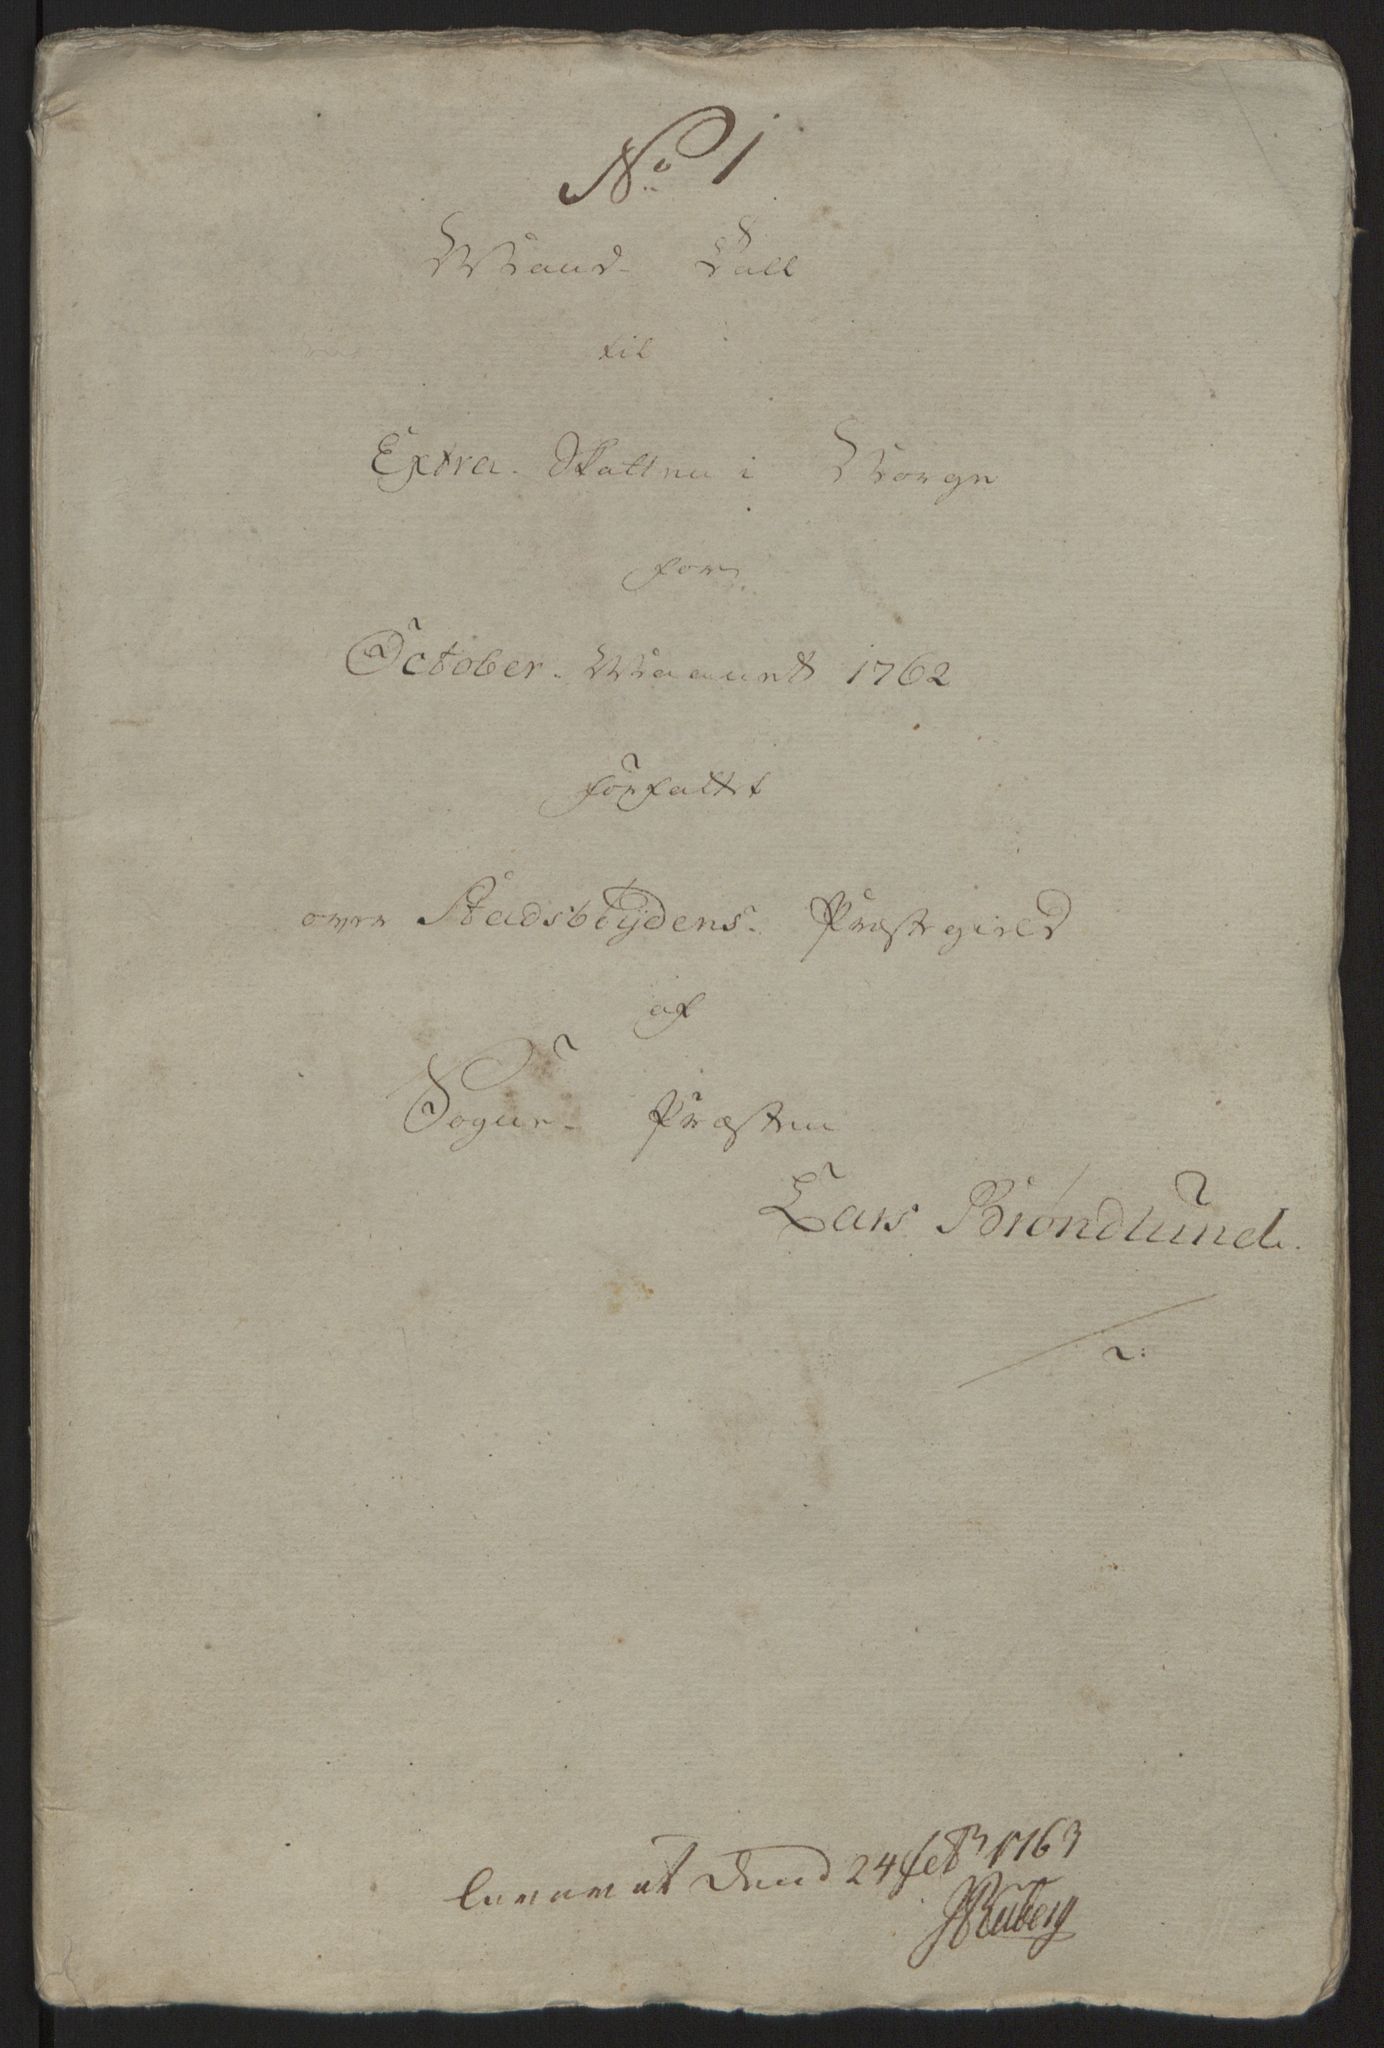 No 1
Mand Tall
til
Extra Skatten i Norge
for
October Maanet 1762
forfattet
over Stadsbÿdens Præstegield
af
Sogne Præsten
Lars Brøndlund
leveret dend 24 feb 1763